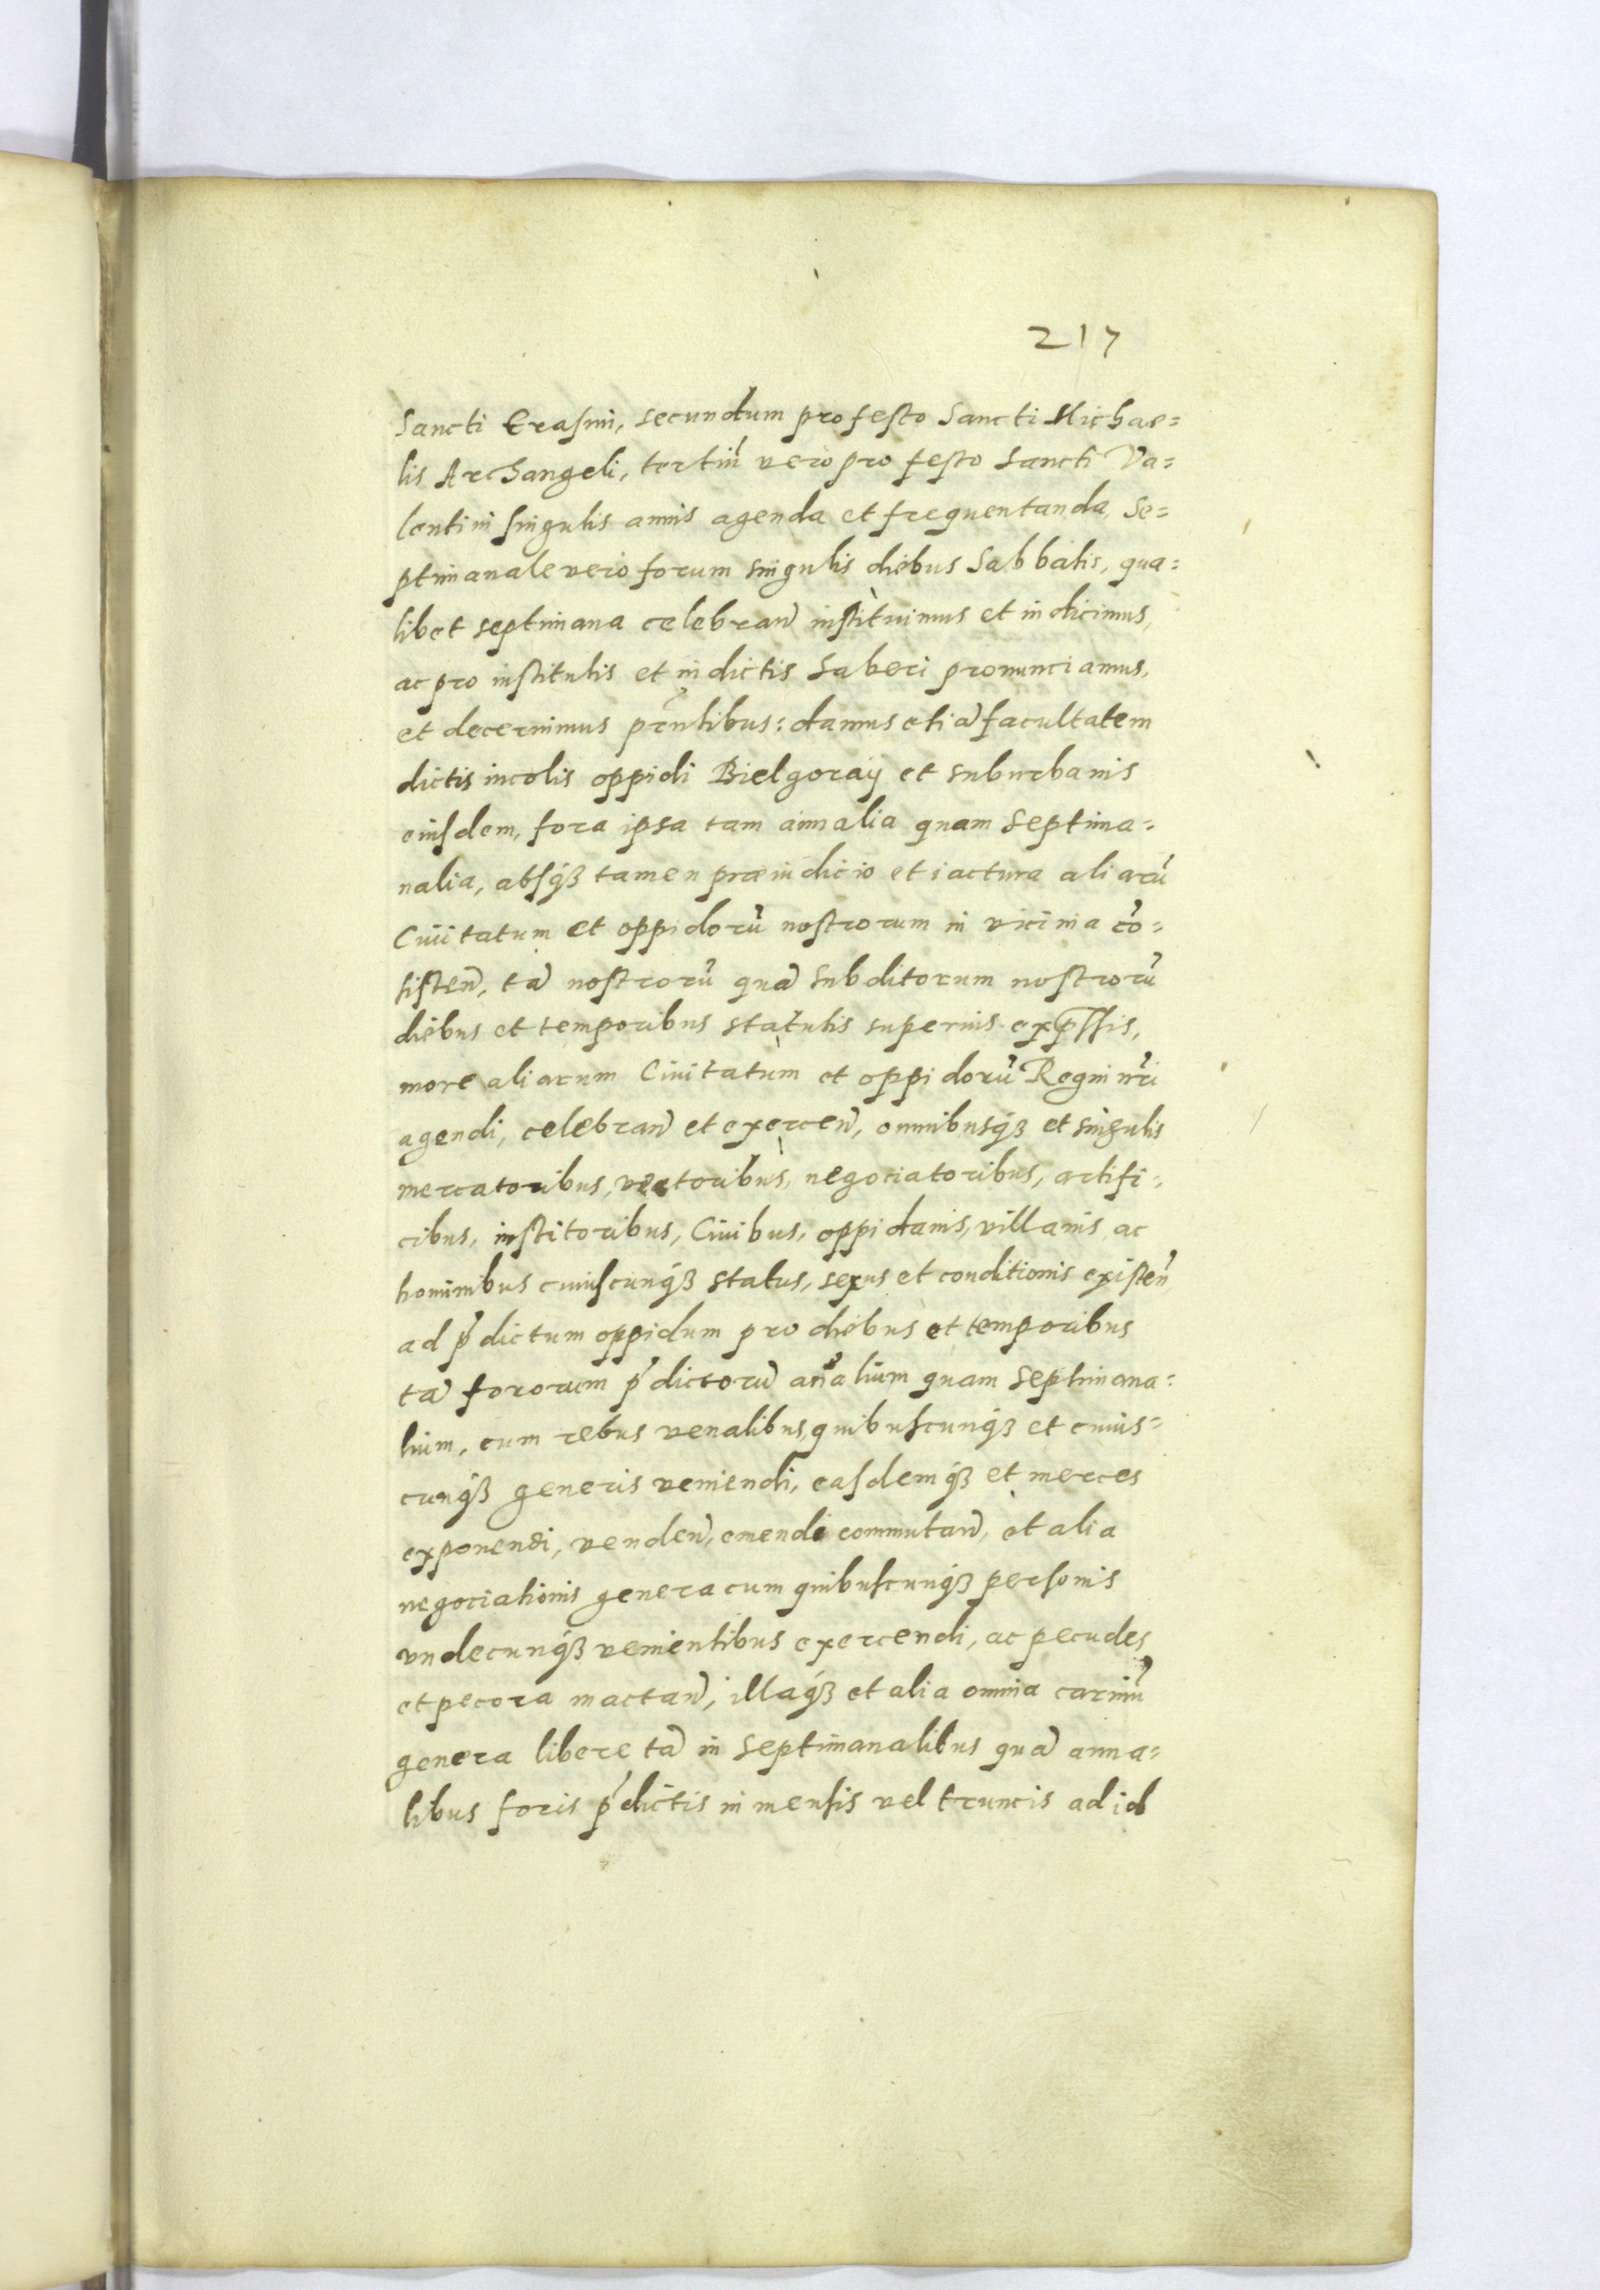 217
Sancti Erasmi, secundum pro festo Sancti Michae=
lis Archangeli, tertiũ vero pro festo Sancti Va=
lentini singulis annis agenda et frequentanda, Se=
ptimanale vero forum singulis diebus Sabbatis, qua=
libet septimana celebrañ instituimus et indicimus,
ac pro institutis et indictis haberi pronunciamus,
et decernimus pr̃ntibus: damus etiã facultatem
dictis incolis oppidi Bielgoraÿ et suburbanis
eiusdem, fora ipsa tam annalia quam septima=
nalia, absq́ꝫ tamen præiudicio et iactura aliarũ
Ciuitatum et oppidorũ nostrorum in vicinia cõ=
sisteñ, tã nostrorũ quã subditorum nostrorũ
diebus et temporibus statutis superius exp̃ssis,
more aliarum Ciuitatum et oppidorũ Regni nr̃i
agendi, celebrañ et exerceñ, omnibusq́ꝫ et singulis
mercatoribus, vectoribus, negociatoribus, artifi=
cibus, institoribus, Ciuibus, oppidanis, villanis, ac
hominibus cuiuscunq́ꝫ status, sexus et conditionis existeñ
ad p̃dictum oppidum pro diebus et temporibus
tã fororum p̃dictorũ añalium quam septimana=
lium, cum rebus venalibus quibuscunq́ꝫ et cuius=
cunq́ꝫ generis veniendi, easdemq́ꝫ et merces
exponendi, vendeñ, emendi commutañ, et alia
negociationis genera cum quibuscunq́ꝫ personis
vndecunq́ꝫ venientibus exercendi, ac pecudes
et pecora mactañ, illaq́ꝫ et alia omnia carniũ
genera libere tã in septimanalibus quã anna=
libus foris p̃dictis in mensis vel truncis ad id